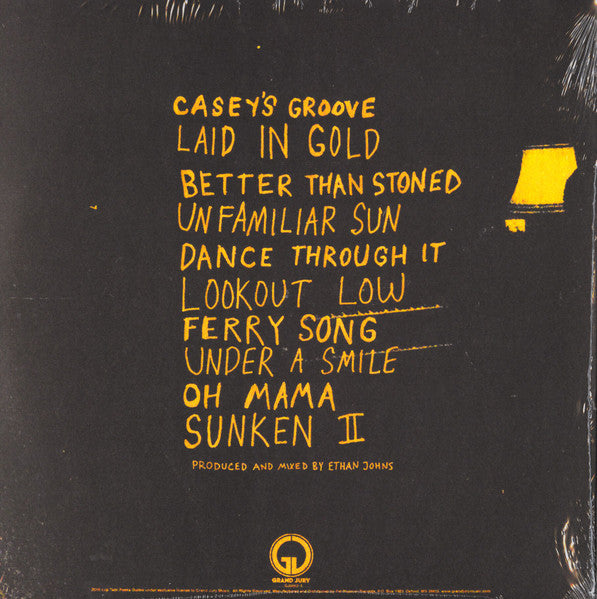 CASEY'S GROOVE
LAID IN GOLD
BETTER THAN STONED
UNFAMILIAR SUN
DANCE THROUGH IT
LOOKOUT LOW
FERRY SONG
UNDER A SMILE
OH MAMA
SUNKEN II
PRODUCED AND MIXED BY ETHAN JOHNS
GRAND JURY